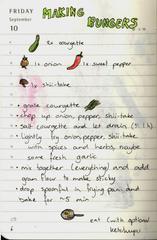 FRIDAY
MAKING
September
BURGERS
10
2x courgette
1x onion 1x sweet pepper
1x shii-take
• grate courgette
• chop up onion, pepper, shii-take
• salt courgette and let drain (± 1 h)
• lightly fry onion, pepper, shii-take
with spices and herbs, maybe
some fresh garlic
• mix together (everything) and add
gram flour to make sticky
• drop spoonful in frying pan and
bake for ~5 min
eat (with optional
ketchup)